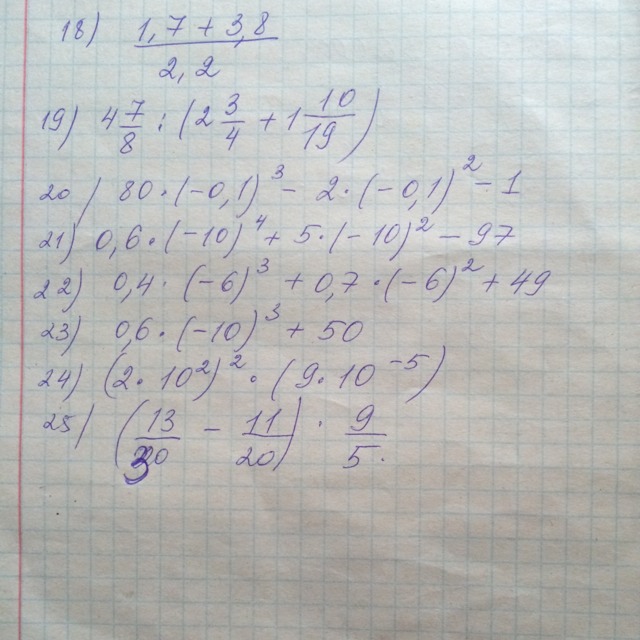 18) (1,7 + 3,8) / 2,2
19) 4 7/8 : (2 3/4 + 1 10/19)
20) 80·(-0,1)³ - 2·(-0,1)² - 1
21) 0,6·(-10)⁴ + 5·(-10)² - 97
22) 0,4·(-6)³ + 0,7·(-6)² + 49
23) 0,6·(-10)³ + 50
24) (2·10²)²·(9·10⁻⁵)
25) (13/30 - 11/20)·9/5.